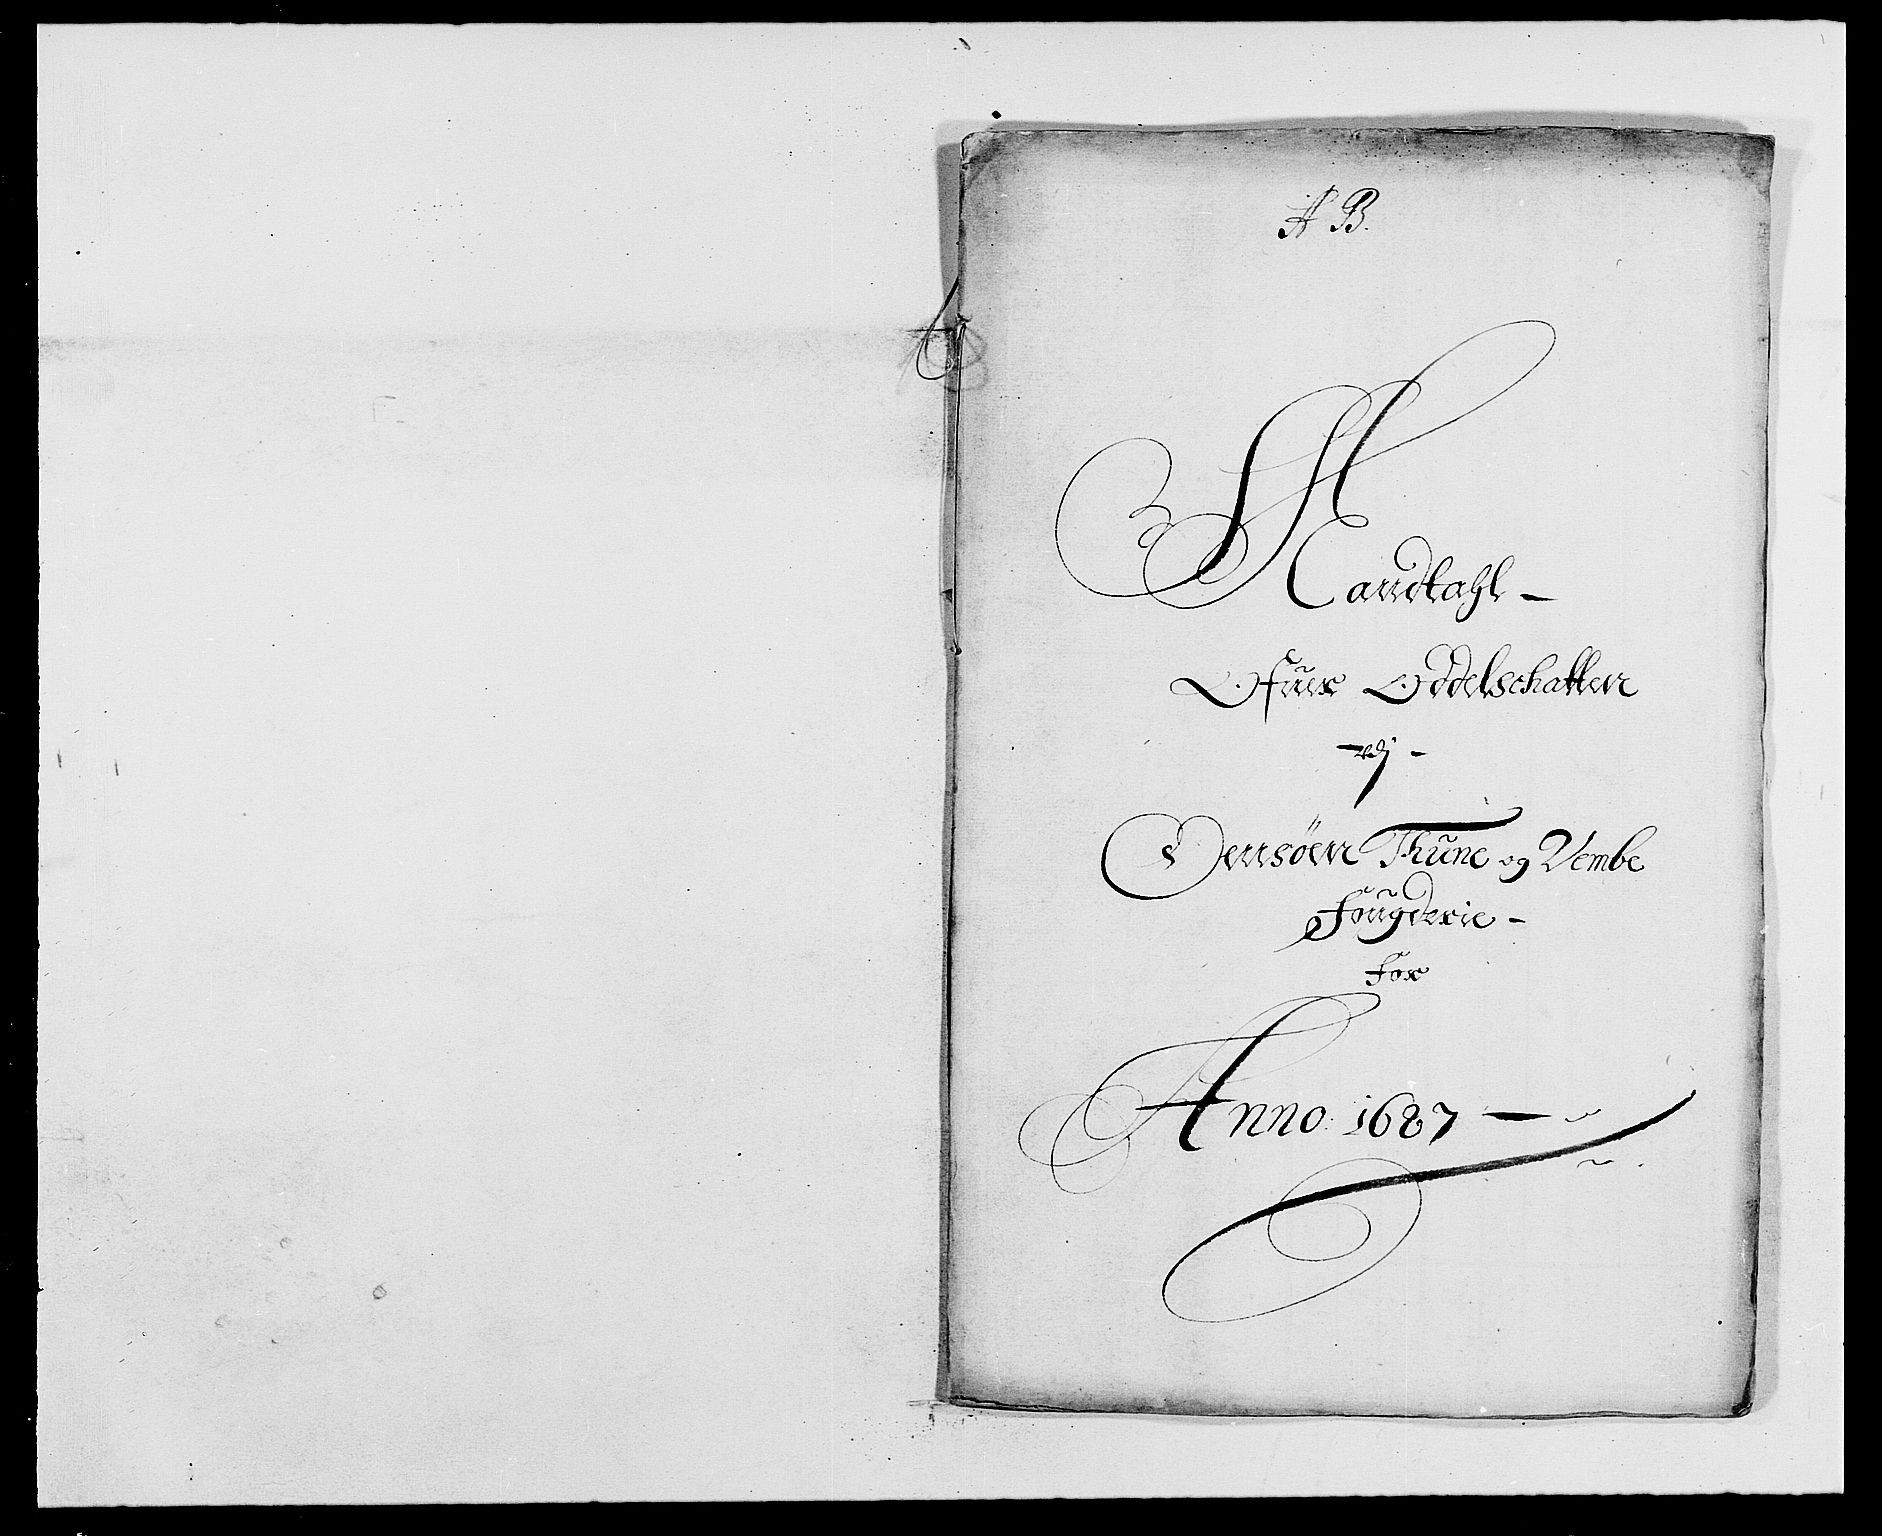 A B.
Mandtahl -
Ofuer Oddelschatten
udj -
Jemsöen Thune og Vembe
Fougderie -
for
Anno 1687 -